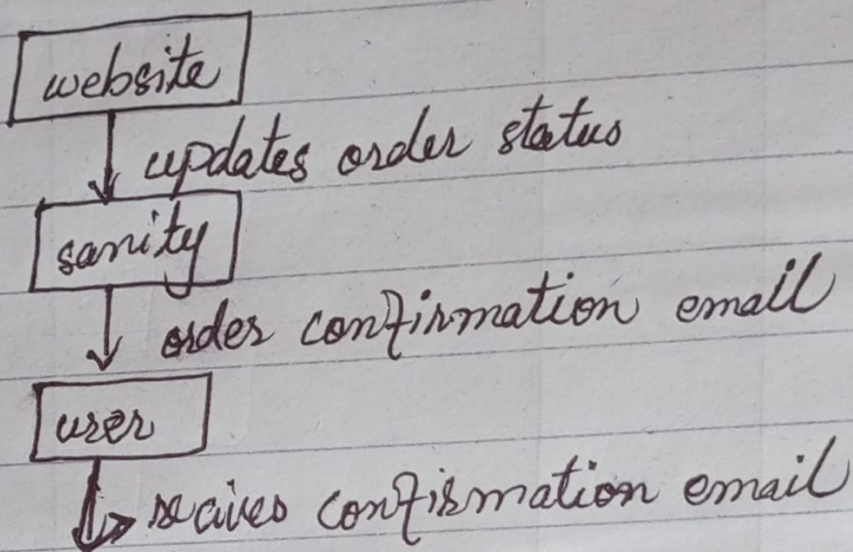 website
updates order status
sanity
order confirmation email
user
recives confirmation email